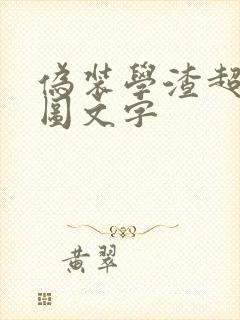 偽裝學渣超
圖文字
黃翠